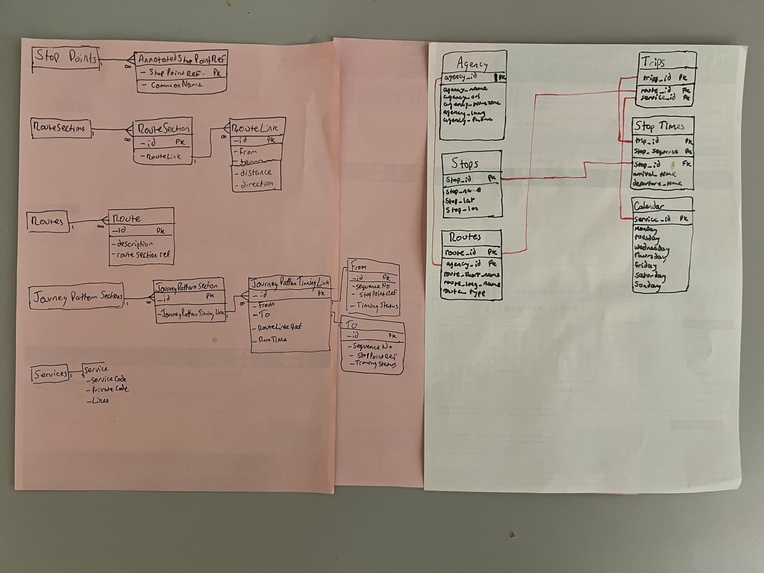 Stop Points
1
∞
AnnotatedStopPointRef
- StopPointRef - PK
- CommonName
RouteSections
1
∞
RouteSection
- id PK
- routeLink
∞
RouteLink
- id PK
- from
- distance
- direction
Routes
1
∞
Route
- id PK
- description
- route section ref
Journey Pattern Sections
1
∞
JourneyPatternSection
- id PK
- JourneyPatternTimingLink
∞
JourneyPatternTimingLink
- id PK
- From
- To
- RouteLinkRef
- RunTime
From
- id PK
- sequenceNo
- StopPointRef
- TimingStatus
To
- id PK
- SequenceNo
- StopPointRef
- TimingStatus
Services
1
Service
- serviceCode
- PrivateCode
- Lines
Agency
agency_id PK
agency_name
agency_url
agency_timezone
agency_lang
agency_phone
Stops
Stop_id PK
Stop_name
Stop_lat
Stop_lon
Routes
route_id PK
agency_id PK
route_short_name
route_long_name
route_type
Trips
trip_id PK
route_id PK
service_id PK
Stop Times
trip_id PK
Stop_sequence PK
Stop_id PK
arrival_time
departure_time
Calendar
service_id PK
Monday
tuesday
wednesday
thursday
friday
saturday
Sunday